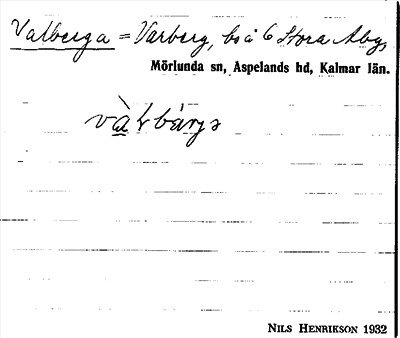 Valberga = Varberg, bs å 6 Stora Aby,
Mörlunda sn, Aspelands hd, Kalmar län.
NILS HENRIKSON 1932